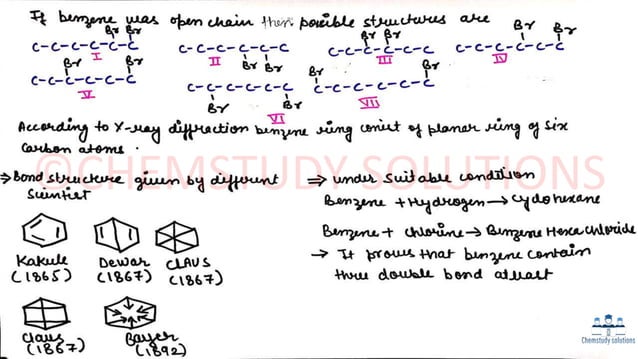 If benzene was open chain then possible structures are
Br Br
C-C-C-C-C-C
I
C-C-C-C-C-C
II
Br Br
Br Br
C-C-C-C-C-C
III
Br Br
C-C-C-C-C-C
IV
Br Br
C-C-C-C-C-C
V
C-C-C-C-C-C
Br Br
VI
Br Br
C-C-C-C-C-C
VII
According to X-ray diffraction benzene ring consist of planar ring of six
Carbon atoms.
©CHEMSTUDY SOLUTIONS
⇒ Bond structure given by different
Scientist
Kakule
(1865)
Dewar
(1867)
CLAUS
(1867)
Claus
(1867)
Bayer
(1892)
⇒ under suitable condition
Benzene + Hydrogen → Cyclohexane
Benzene + chlorine → Benzene Hexachloride
→ It proves that benzene contain
three double bond atleast
Chemstudy solutions